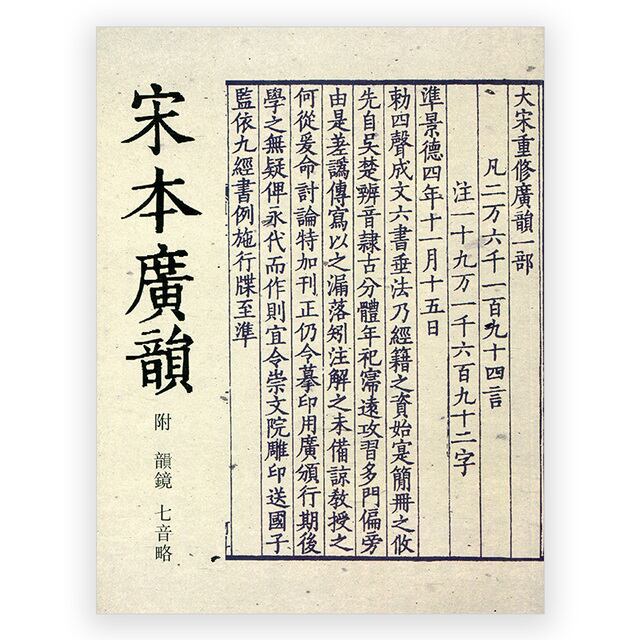 大宋重修廣韻一部
凡二万六千一百九十四言
注一十九万一千六百九十二字
準景德四年十一月十五日
勑四聲成文六書垂法乃經籍之資始寔簡冊之攸
先自吳楚辨音隸古分體年祀寖遠攻習多門偏旁
由是差譌傳寫以之漏落矧注解之未備諒教授之
何從爰命討論特加刊正仍令摹印用廣頒行期後
學之無疑俾永代而作則宜令崇文院雕印送國子
監依九經書例施行牒至準
宋本廣韻
附 韻鏡 七音略